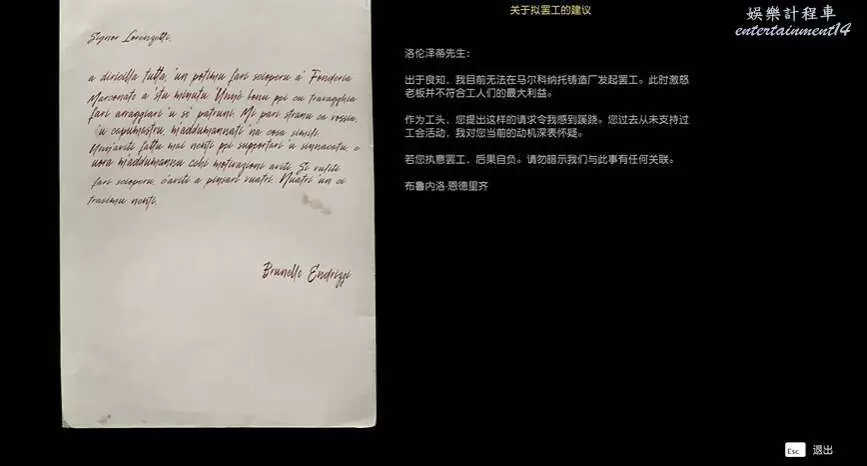 Signor Lorenzetti,
a diriccilla tutta, 'un potimu fari scioperu a' Fonderia
Marconato a 'stu minutu. 'Unn'è bonu ppi cu travagghia
fari arraggiari 'u si' patruni. Mi pari stranu ca vossia,
'u capumastru, m'addumannati 'na cosa simili.
'Un n'aviti fattu mai nenti ppi supportari 'u sinnacatu, e
uora m'addumannu cchi motivazioni aviti. Si vuliti
fari scioperu, c'aviti a pinsari vuatri. Nuatri 'un ci
trasimu nenti.
Brunello Endrizzi
关于拟罢工的建议
洛伦泽蒂先生：
出于良知，我目前无法在马尔科纳托铸造厂发起罢工。此时激怒
老板并不符合工人们的最大利益。
作为工头，您提出这样的请求令我感到蹊跷。您过去从未支持过
工会活动，我对您当前的动机深表怀疑。
若您执意罢工，后果自负。请勿暗示我们与此事有任何关联。
布鲁内洛·恩德里齐
娛樂計程車
entertainment14
Esc 退出